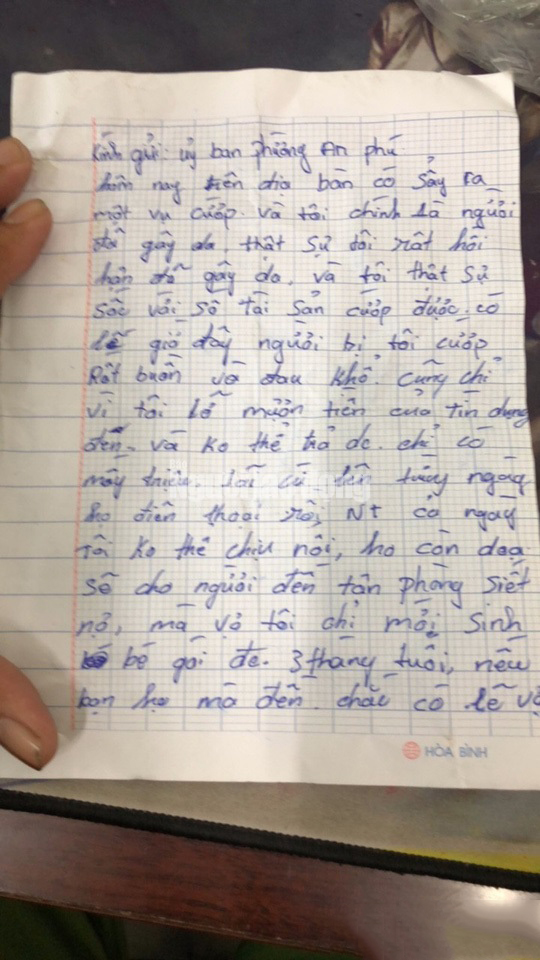 Kính gửi: uỷ ban phường An phú
hôm nay trên địa bàn có sảy ra
một vụ cướp. và tôi chính là người
đã gây da. thật sự tôi rất hối
hận đã gây da, và tôi thật sự
sốc với số tài sản cướp được. có
lẽ giờ đây người bị tôi cướp
Rất buồn và đau khổ. cũng chỉ
vì tôi lỡ mượn tiền của tín dụng
đen. và ko thể trả dc. chỉ có
mấy triệu lãi cứ lên từng ngày
họ điện thoại rồi, NT cả ngày
Tôi ko thể chịu nổi, họ còn doạ
sẽ cho người đến tận phòng siết
nợ, mà vợ tôi chỉ mới sinh
bé gái đc. 3 tháng tuổi, nếu
bọn họ mà đến. chắc có lẽ vợ
HÒA BÌNH